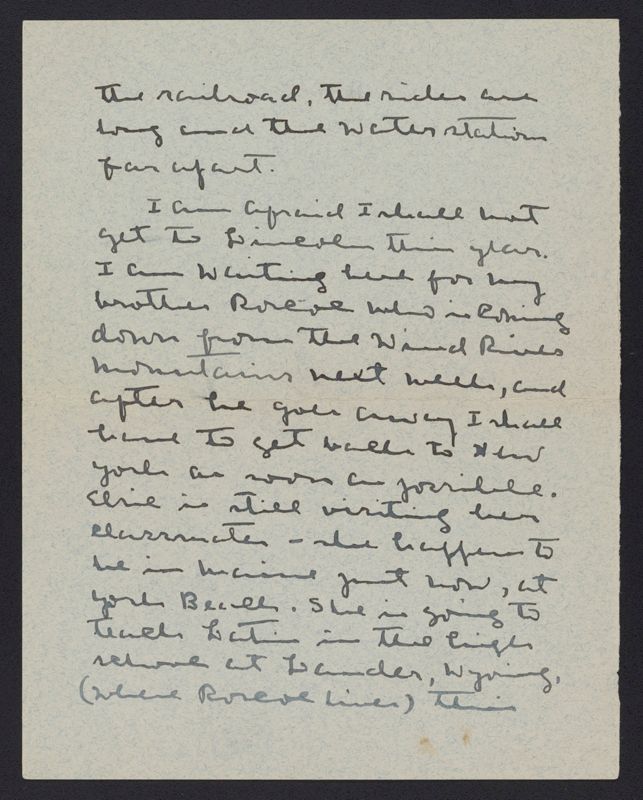 the railroad, the rides are
long and the water stations
far apart.
I am afraid I shall not
get to Lincoln this year.
I am waiting here for my
brother Roscoe who is coming
down from the Wind River
mountains next week, and
after he goes away I shall
have to get back to New
York as soon as possible.
Elsie is still visiting her
classmates - she happens to
be in Maine just now, at
York Beach. She is going to
teach Latin in the high
school at Lander, Wyoing,
(where Roscoe lives) this